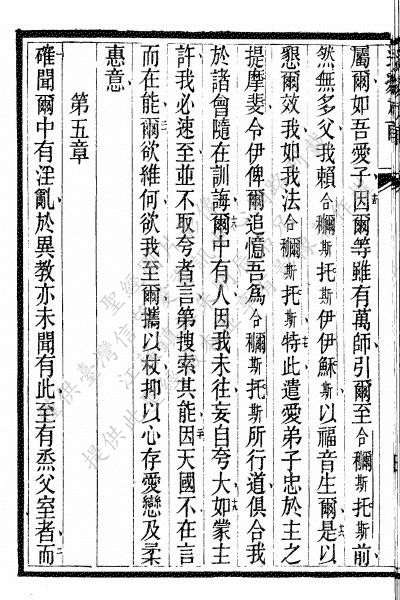 屬爾如吾愛子因爾等雖有萬師引爾至合穪斯托斯前
然無多父我賴合穪斯托斯伊伊穌斯以福音生爾是以
懇爾效我如我法合穪斯托斯特此遣愛弟子忠於主之
提摩斐令伊俾爾追憶吾爲合穪斯托斯所行道俱合我
於諸會隨在訓誨爾中有人因我未往妄自夸大如蒙主
許我必速至並不取夸者言第搜索其能因天國不在言
而在能爾欲維何欲我至爾攜以杖抑以心存愛戀及柔
惠意
第五章
確聞爾中有淫亂於異教亦未聞有此至有烝父室者而